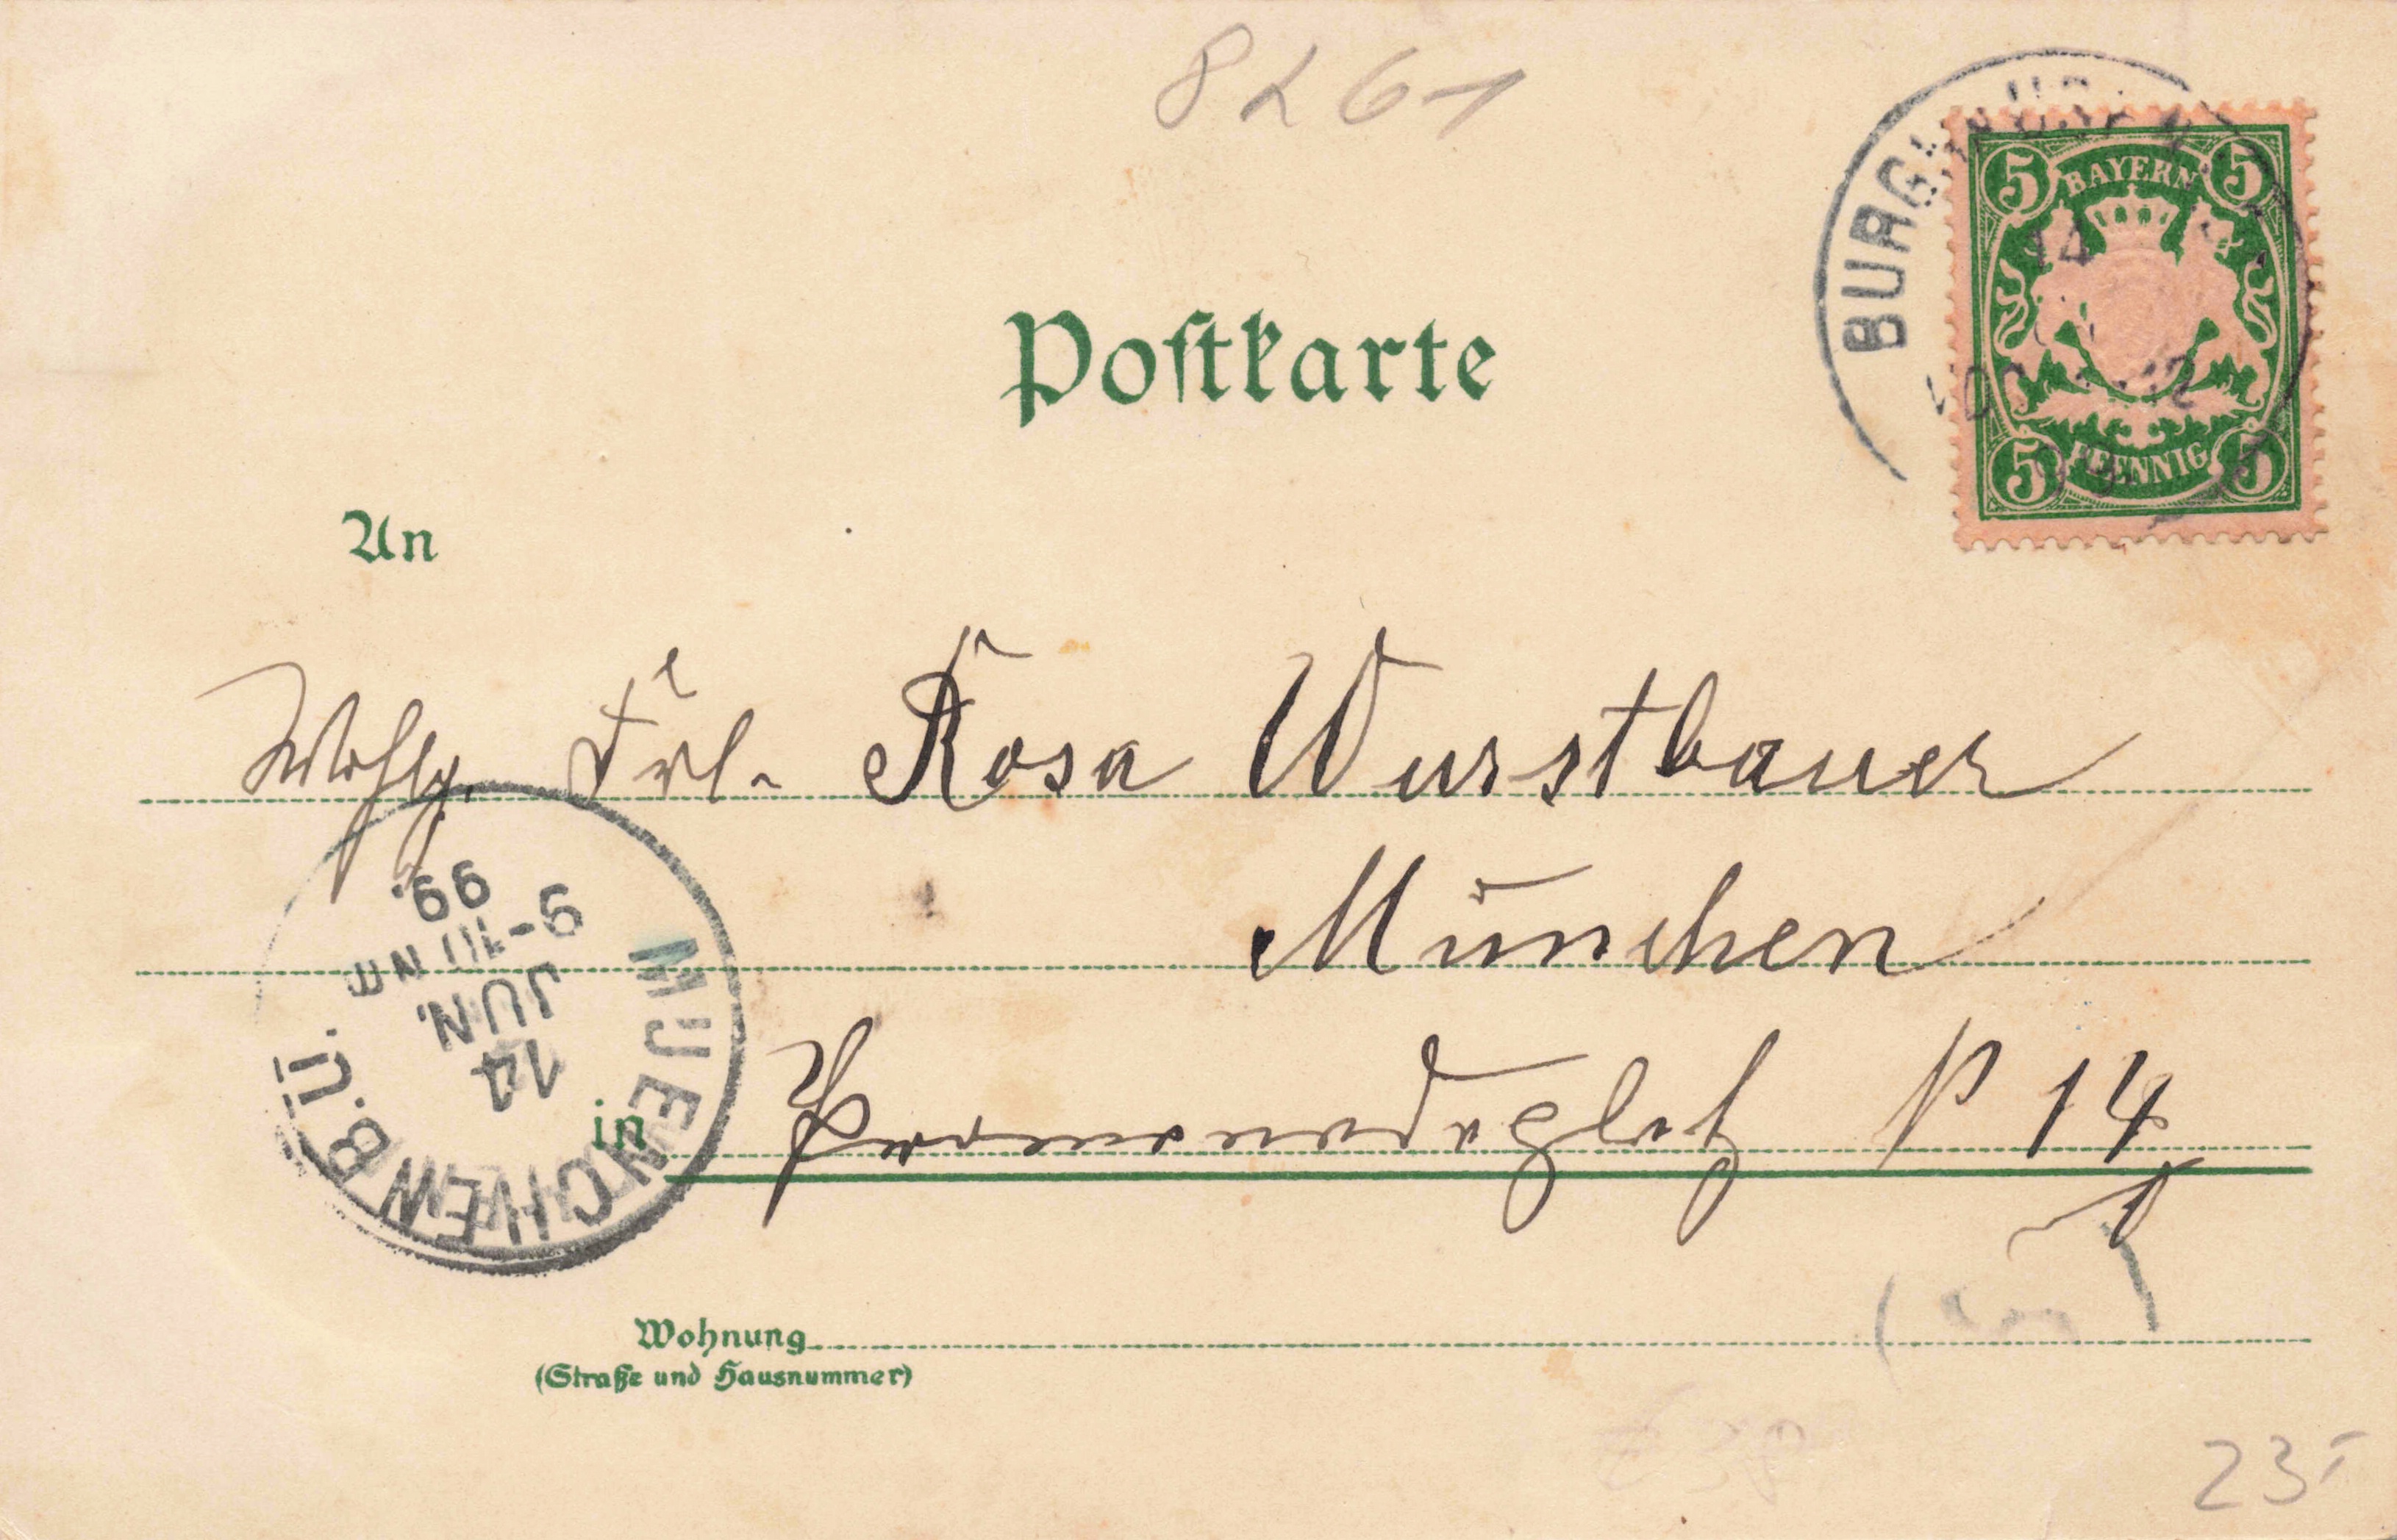 8261
BURGHAUSEN
5 BAYERN 5
14
5 PFENNIG 5
Postkarte
An
Wohlg. Frl. Rosa Wurstbauer
München
in Promenadeplatz № 14
MUENCHEN B.Ü.
14
JUN.
9-10 NM
99.
Wohnung
(Straße und Hausnummer)
23